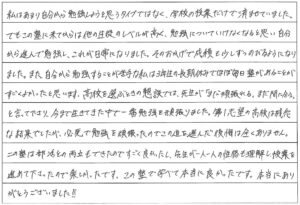 私はあまり自分から勉強しようと思うタイプではなく、学校の授業だけで済ませていました。
でもこの塾に来てからは他の生徒のレベルが高く、勉強についていけなくなると思い自分
から進んで勉強し、これが日常になりました。そのおかげで成績も少しずつのびるようになり
ました。また自分から勉強することが苦手な私は3年生の長期休みでほぼ毎日塾があることが
すごくよかったと思います。高校を選ぶときの懇談では、先生が「まだ頑張れる。まだ間に合う。」
と言って下さり、今まで生きてきた中で一番勉強を頑張りました。第1志望の高校は残念
な結果でしたが、必死で勉強を頑張ったのでこの道を選んだ後悔は全くありません。
この塾は部活との両立もできたのですごく良かったし、先生が一人一人の性格を理解し授業を
進めて下さったので楽しかったです。この塾で学べて本当に良かったです。本当にあり
がとうございました!!